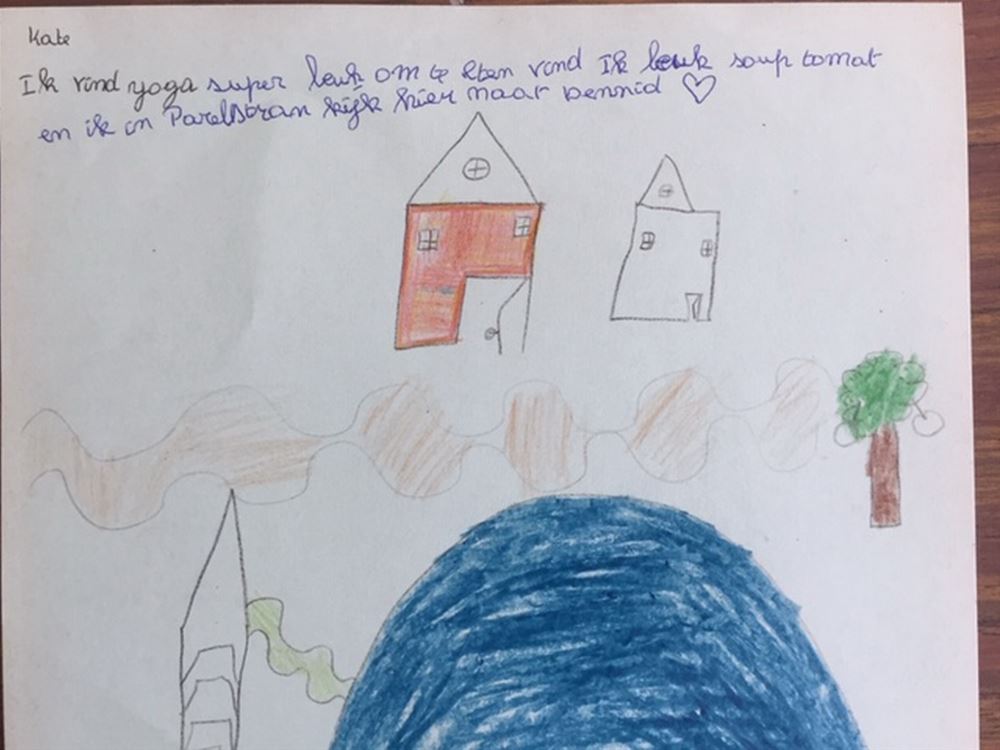 Kate
Ik vind yoga super leuk om te eten vind Ik leuk soup tomat
en ik in Parelstran kijk hier maar